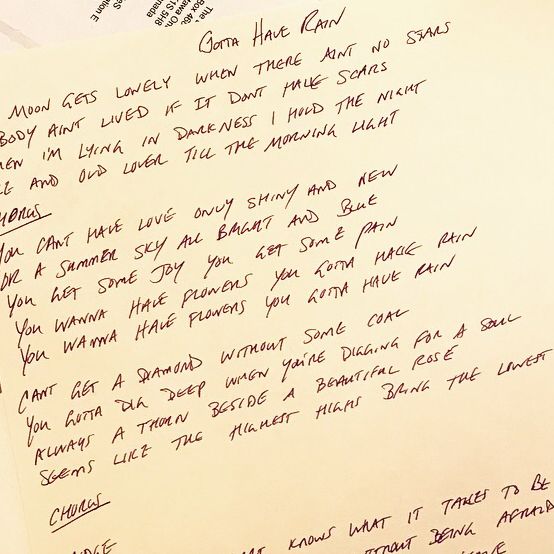 The
Box 46
awa On
1S 5H8
nada
tion E
GOTTA HAVE RAIN
MOON GETS LONELY WHEN THERE AINT NO STARS
BODY AINT LIVED IF IT DONT HAVE SCARS
EN I'M LYING IN DARKNESS I HOLD THE NIGHT
KE AND OLD LOVER TILL THE MORNING LIGHT
HORUS
YOU CANT HAVE LOVE ONLY SHINY AND NEW
OR A SUMMER SKY ALL BRIGHT AND BLUE
YOU GET SOME JOY YOU GET SOME PAIN
YOU WANNA HAVE FLOWERS YOU GOTTA HAVE RAIN
YOU WANNA HAVE FLOWERS YOU GOTTA HAVE RAIN
CANT GET A DIAMOND WITHOUT SOME COAL
YOU GOTTA DIG DEEP WHEN YOU'RE DIGGING FOR A SOUL
ALWAYS A THORN BESIDE A BEAUTIFUL ROSE
SEEMS LIKE THE HIGHEST HIGHS BRING THE LOWEST
CHORUS
DGE
KNOWS WHAT IT TAKES TO BE
THOUT BEING AFRAID